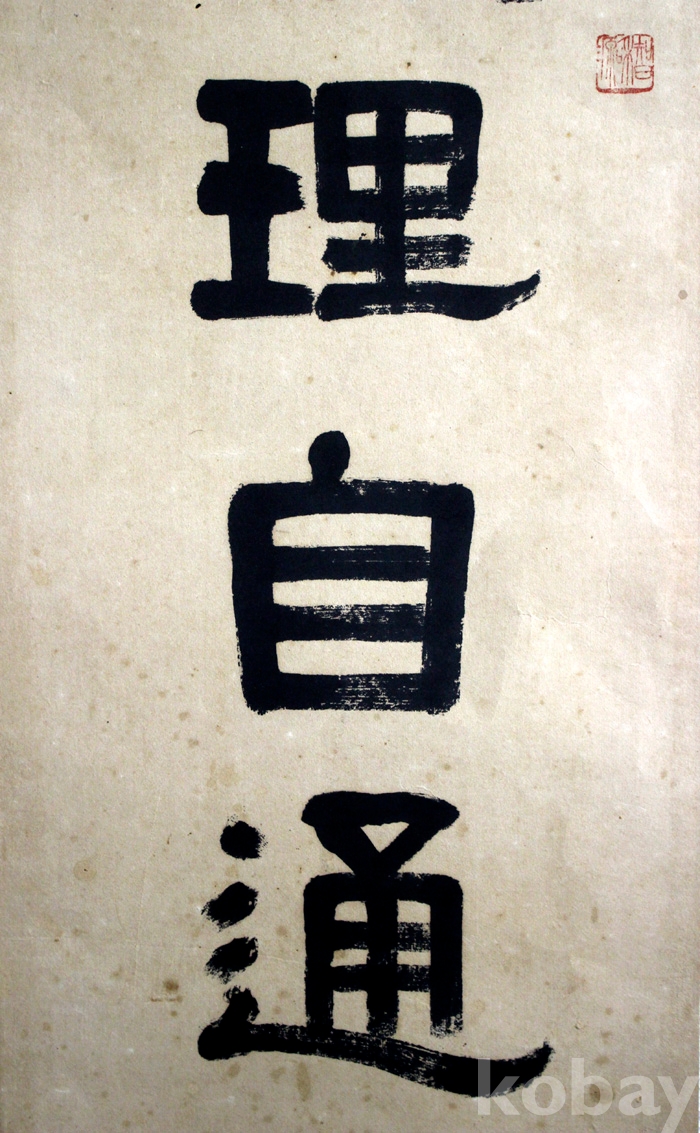 理自通
kobay